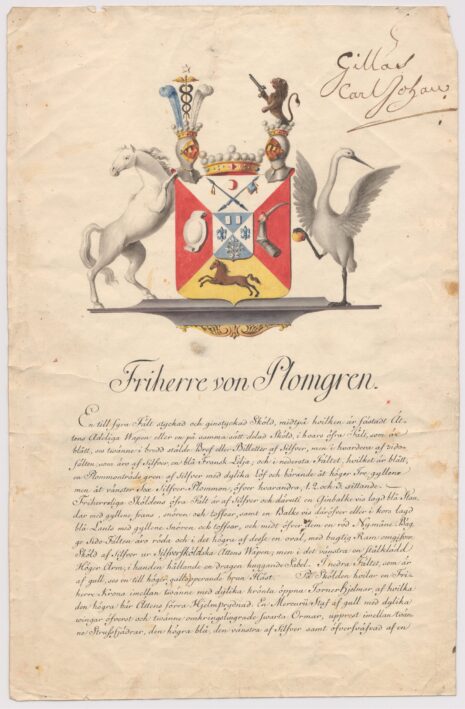 Gillas
Carl Johan
Friherre von Plomgren.
En till fyra Fält styckad och ginstyckad Sköld, midtpå hvilken är fästadt Ät-
tens Adeliga Wapen eller en på samma sätt delad Sköld, i hvars öfra Fält, som är
blått, två i bredd stälde Bref eller Billetter af Silfver, men i hvardera af sido-
fälten, som äro af Silfver, en blå Fransk Lilja, och i nedersta Fältet, hvilket är blått,
en Plommonträds gren af Silfver med dylika löf och bärande åt höger Tre gyllene
men åt vänster Sex Silfver Plommon, öfver hvarandra, 1, 2 och 3, sittande.
Friherrliga Sköldens öfra Fält är af Silfver och deruti en Ginbalkevis lagd blå
dar med gyllene frans, snören och toffsar, samt en Balkevis deröfver eller i kors lagd
blå Lants med gyllene Snören och toffsar, och midt öfver dem en röd Nymåne. Båg-
ge Sido Fälten äro röda och i det högra af desse en oval, med bugtig Ram omgifven
Sköld af Silfver ur Silfversköldska Ättens Wapen; men i det vänstra en Stålklädd
Höger Arm, i handen hållande en dragen huggande Sabel. I nedra Fältet, som är
af gull, ses en till höger gallopperande brun Häst. På Skölden hvilar en Fri-
herre Krona emellan tvänne med dylika krönta öppna Tornerhjelmar, af hvilka
den högra bär Ättens förra Hjelmprydnad: En Mercurii Staf af gull med dylika
vingar öfverst och tvänne omkringslingrande svarta Ormar, upprest imellan två-
ne Strussfjädrar, den högra blå, den vänstra af Silfver samt öfversväfvad af en